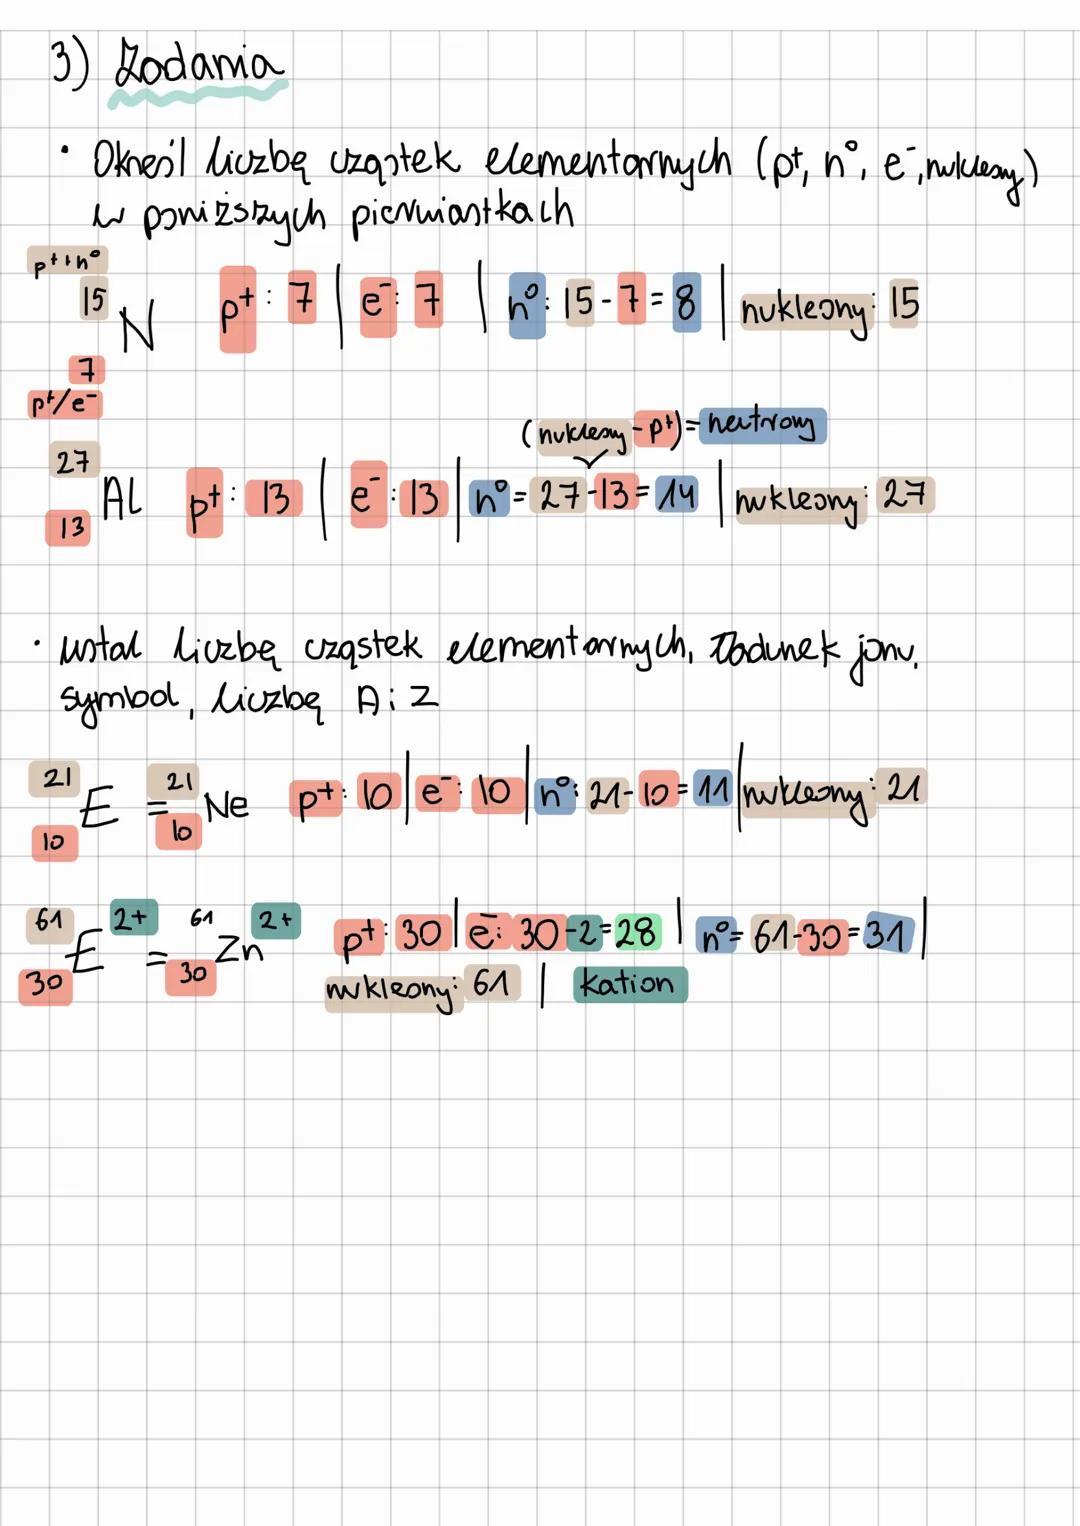 3) Zadania
• Określ liczbę cząstek elementarnych (p⁺, n⁰, e⁻, nukleony)
w poniższych pierwiastkach
p⁺+n⁰
15
N p⁺: 7 | e⁻: 7 | n⁰: 15-7=8 | nukleony: 15
7
p⁺/e⁻
(nukleony-p⁺)=neutrony
27
Al p⁺: 13 | e⁻: 13 | n⁰=27-13=14 | nukleony: 27
13
• ustal liczbę cząstek elementarnych, ładunek jonu,
symbol, liczbę A i Z
21 21
E = Ne p⁺: 10 | e⁻: 10 | n⁰: 21-10=11 | nukleony: 21
10 10
61 2+ 61 2+
E = Zn p⁺: 30 | e⁻: 30-2=28 | n⁰=61-30=31 |
30 30
nukleony: 61 | kation